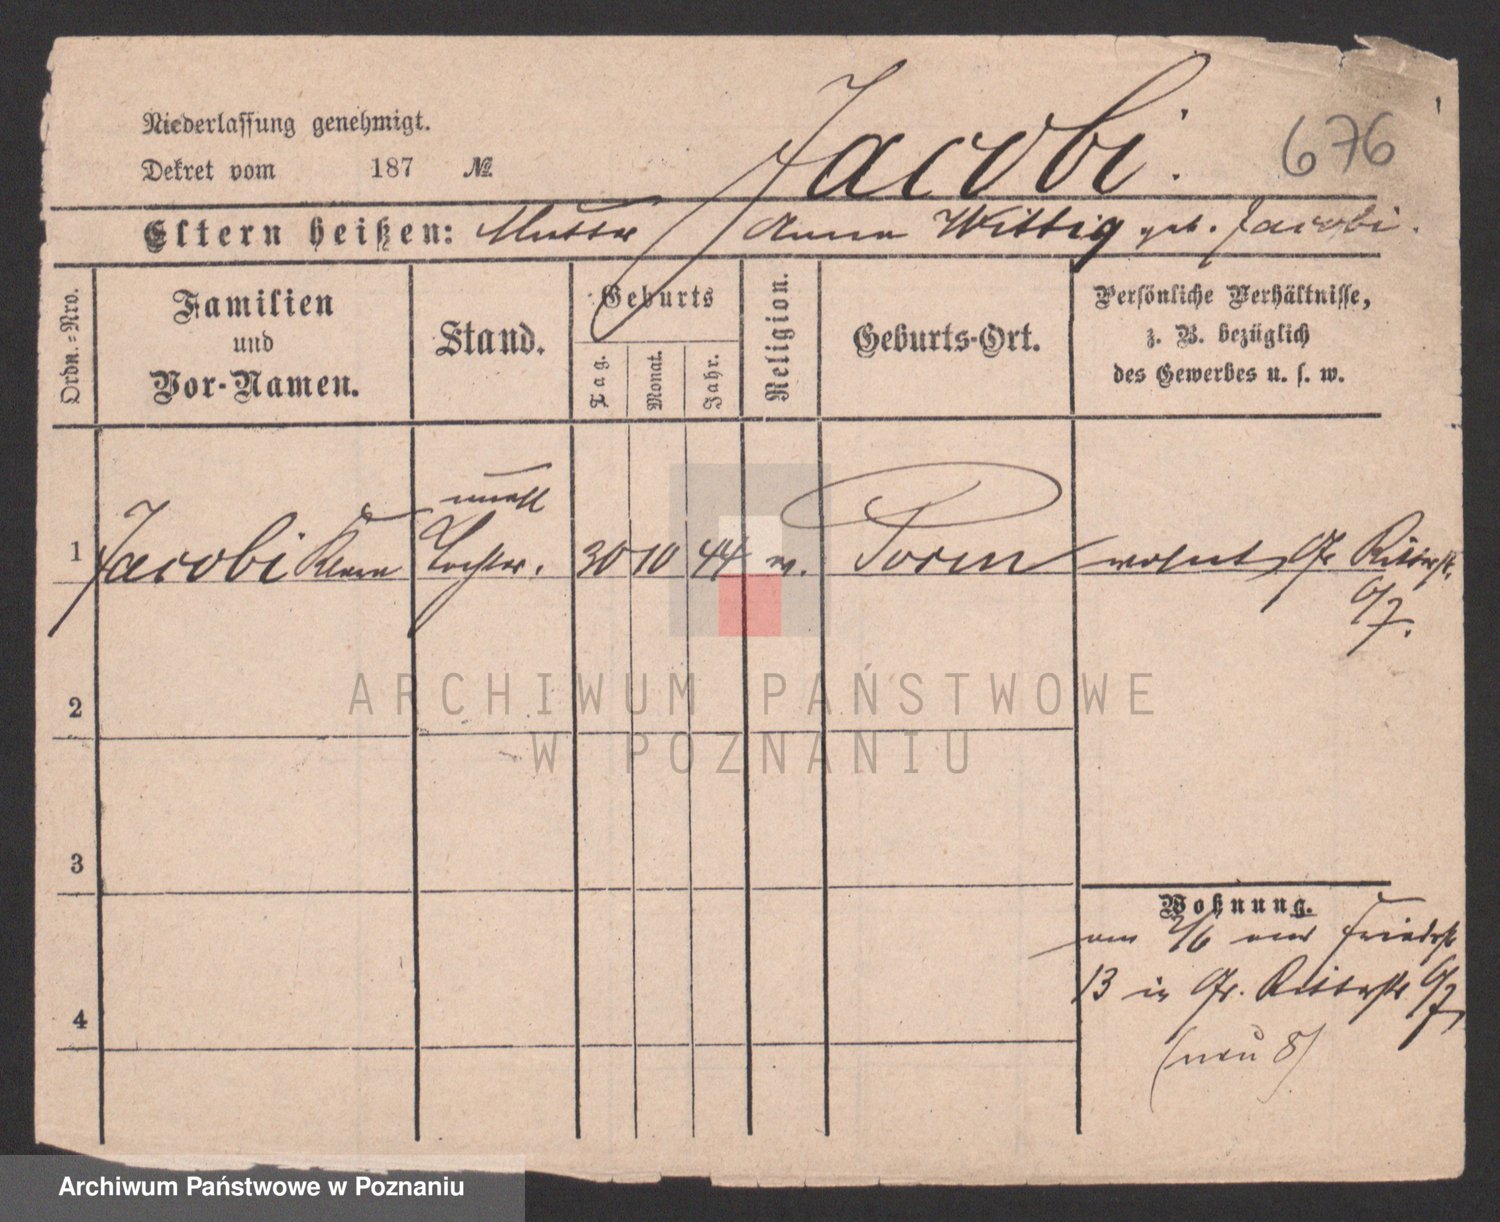 Jacobi.
676
Niederlassung genehmigt.
Dekret vom 187 №
Eltern heißen: Mutter Anna Wittig geb. Jacobi.
Ordn.-Nro.
Familien
und
Vor-Namen.
Stand.
Geburts
Tag.
Monat.
Jahr.
Religion.
Geburts-Ort.
Persönliche Verhältnisse,
z. B. bezüglich
des Gewerbes u. s. w.
unehl
1 Jacobi Tochter. 30 10 44 Posen wohnt Gr Ritterstr.
6/7.
2
3
4
Wohnung.
am 2/6 aus Friedrstr
13 in Gr. Ritterstr 6/7
(neu 8)
ARCHIWUM PAŃSTWOWE
W POZNANIU
Archiwum Państwowe w Poznaniu